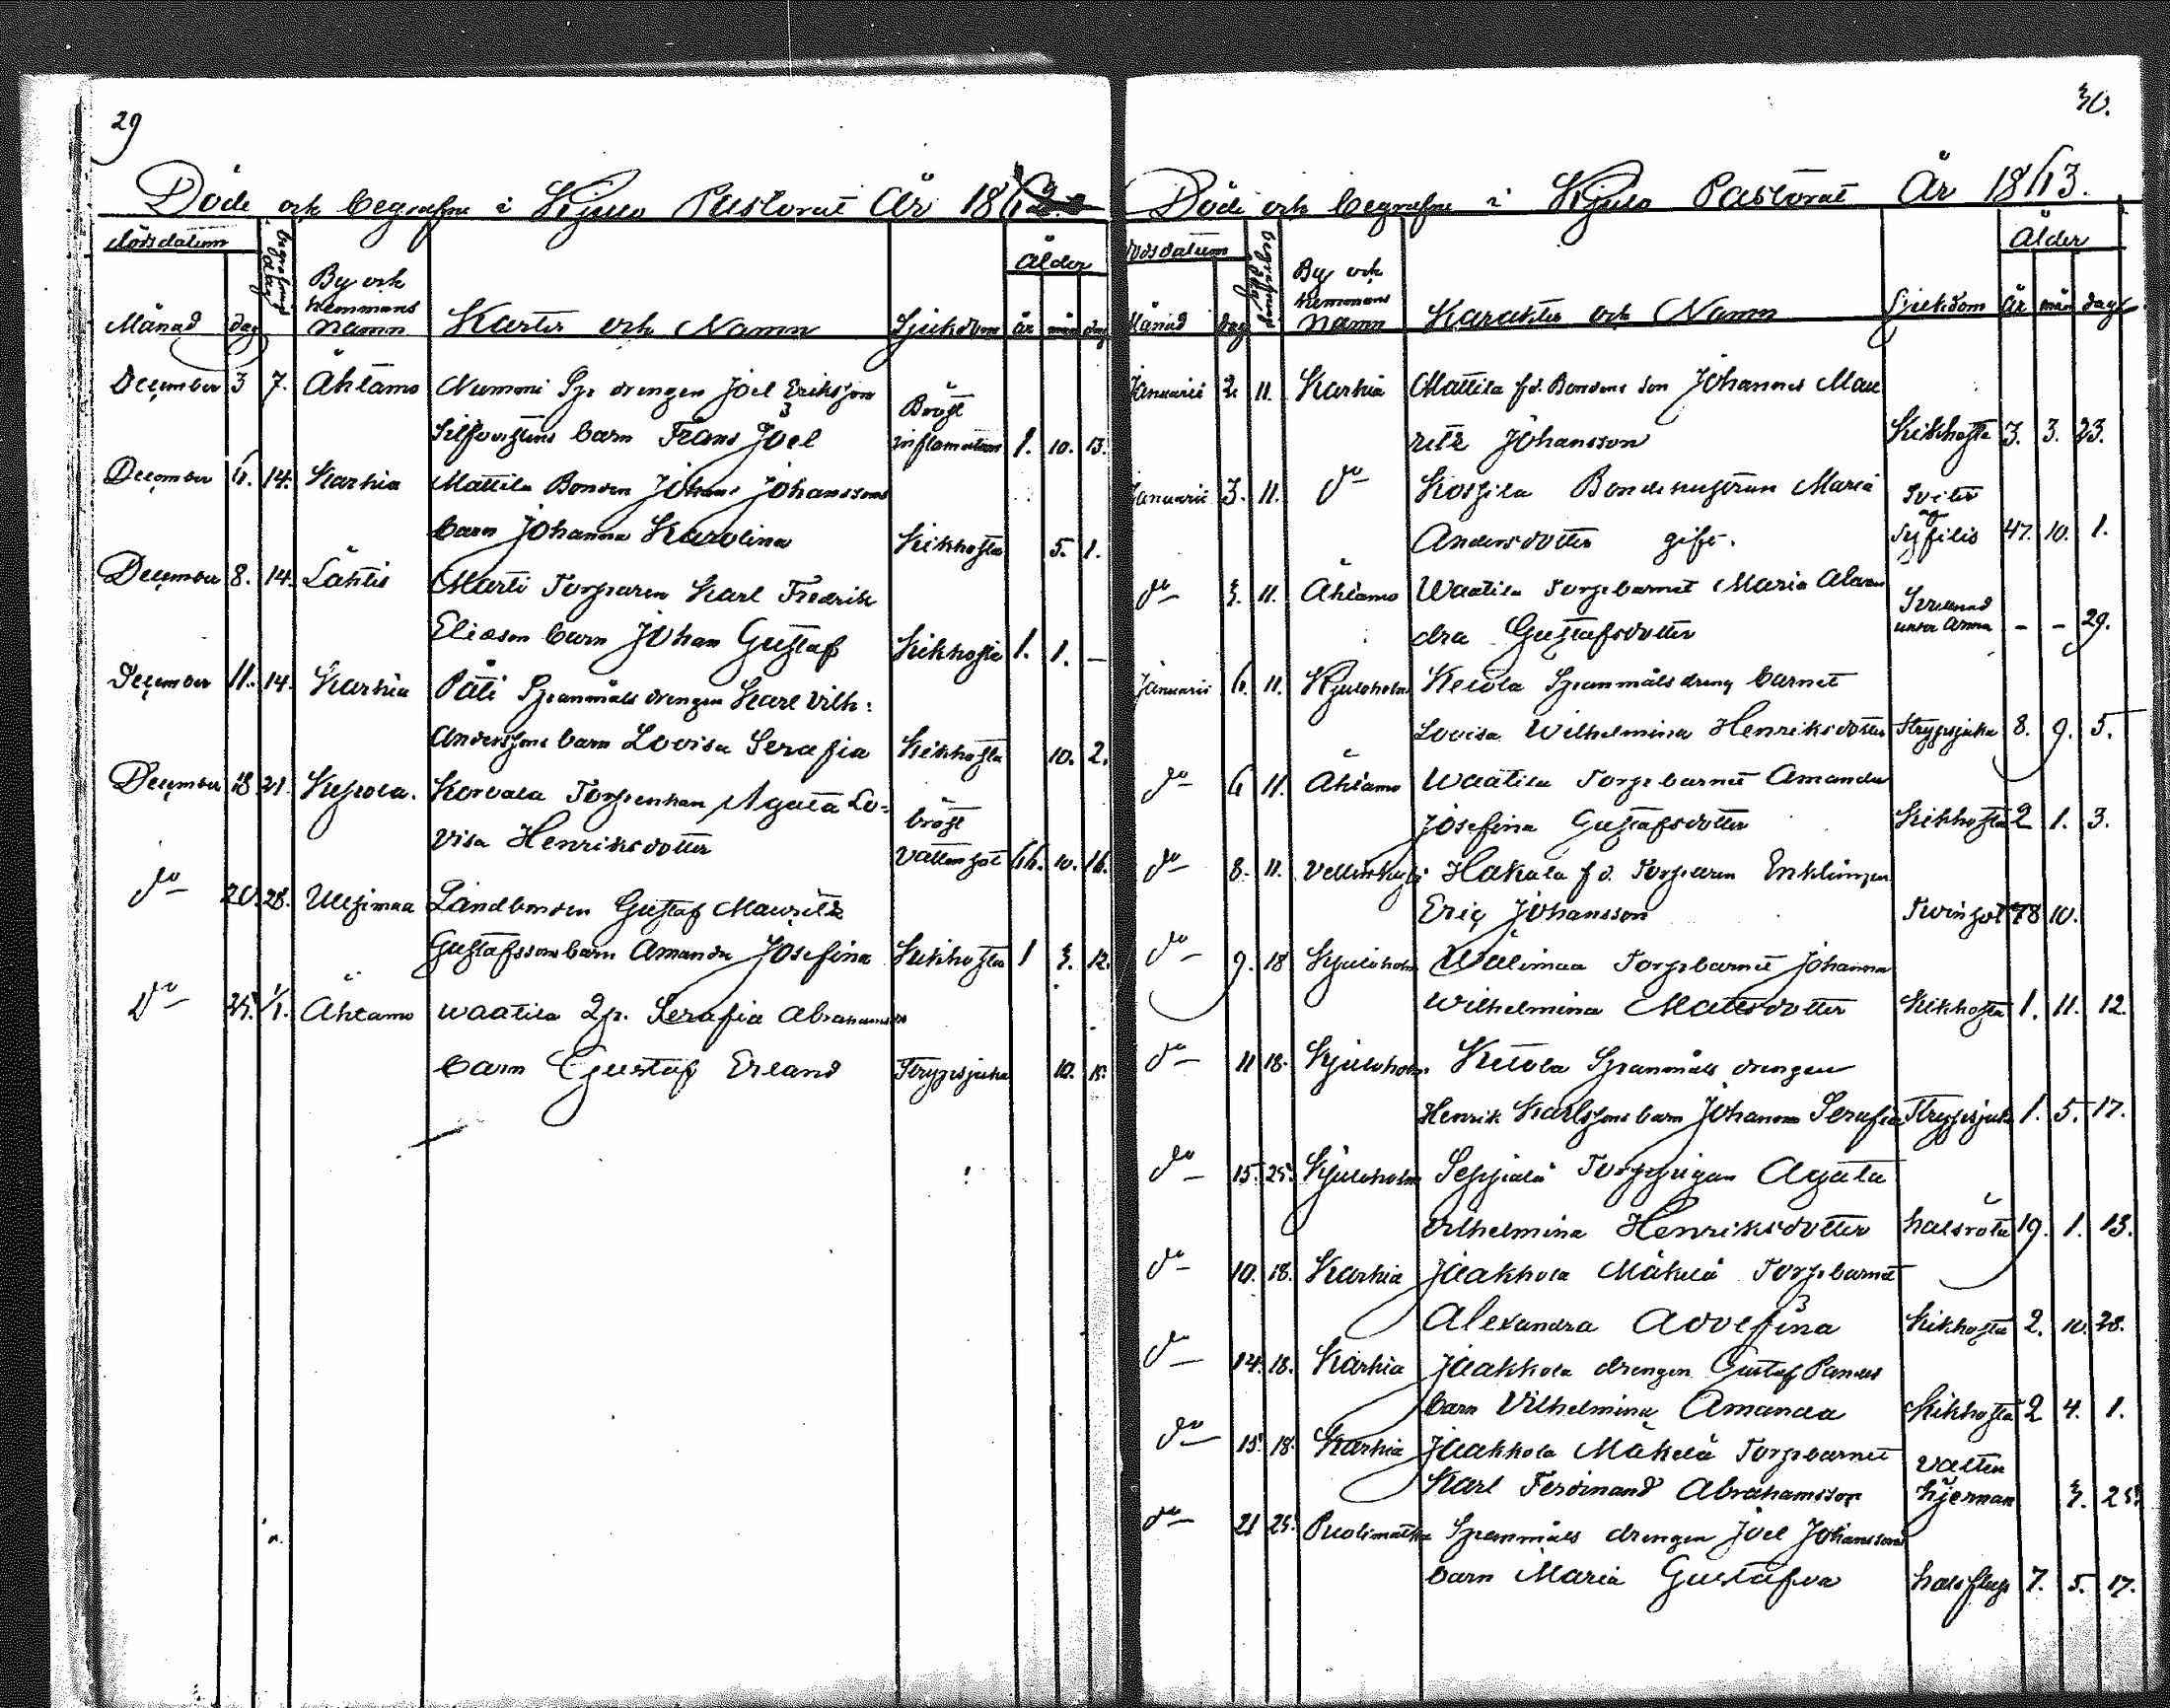 29
Döde och begrafne i Kjulo Pastorat År 1862
dödsdatum
begrafnings dag
By och
hemmans
namn
Ålder
Månad dag
Karter och Namn
Sjukdom år mån dag
December 3 7. Ahtamo Numoni Sp. drengen Joel Eriksson
Bröst
Silfverstens barn Frans Joel inflamation 1. 10. 13.
December 6. 14. Karhia Mattila Bonden Johan Johanssons
barn Johanna Karolina Kikhosta 5. 1.
December 8. 14. Lähtis Marti Torparen Karl Fredrik
Eliæson barn Johan Gustaf Kikhosta 1. 1. –
December 11. 14. Karhia Päti Spanmåls drengen Karl Vilh:
Anderssons barn Lovisa Serafia Kikhosta 10. 2.
December 18 21. Kepola. Korvala Torpenkan Agata Lo-
bröst
visa Henriksdotter vattensot 66. 10. 16.
do 20. 28. Uusimaa Landbonden Gustaf Mauritz
Gustafssons barn Amanda Josefina Kikhosta 1 3. 12.
Do 25. 1/1. Ahtamo Waatila Qp. Serafia Abrahams
barn Gustaf Erland Strypsjuka 10. 15.
30.
Döde och begrafne i Kjulo Pastorat År 1863.
dödsdatum
begrafnings dag
By och
hemmans
namn
Ålder
Månad dag
Karakter och Namn
Sjukdom år mån dag
Januarii 2. 11. Karhia Mattila f.d. Bondens son Johannes Mau
ritz Johansson Kikhosta 3. 3. 23.
Januarii 3. 11. do Koskila Bondehustrun Maria
Sviter
af
Andersdotter gift. Syfilis 47. 10. 1.
do 3. 11. Ahtamo Waatila Torpebarnet Maria Alexan
dra Gustafsdotter
under – – 29.
Januarii 6. 11. Kjuloholm Ketola Spanmåls dreng barnet
Lovisa Wilhelmina Henriksdotter Strypsjuka 8. 9. 5.
do 6 11. Ahtamo Waatila Torpebarnet Amanda
Josefina Gustafsdotter Kikhosta 2 1. 3.
do 8. 11. Hakala f.d. Torparen Enklingen
Eric Johansson Tvinsot 78 10.
do 9. 18 Kjuloholm Wälimaa Torpebarnet Johanna
Wilhelmina Mattsdotter Kikhosta 1. 11. 12.
do 11 18. Kjuloholm Ketola Spanmåls drengen
Henrik Karlssons barn Johanna Serafia Strypsjuka 1. 5. 17.
do 15. 25. Kjuloholm Seppälä Torppigan Agata
Vilhelmina Henriksdotter halsröta 19. 1. 13.
do 10. 18. Karhia Jaakkola Mäkelä Torpbarnet
Alexandra Adolfina Kikhosta 2. 10. 28.
do 14. 18. Karhia Jaakkola drengen Gustaf
barn Vilhelmina Amanda Kikhosta 2 4. 1.
do 15. 18. Karhia Jaakkola Mäkelä Torpebarnet
vatten
Karl Ferdinand Abrahamsson hjernan 3. 25.
do 21 25. Puolimatka Spanmåls drengen Joel Johanssons
barn Maria Gustafva halsfluss 7. 5. 17.